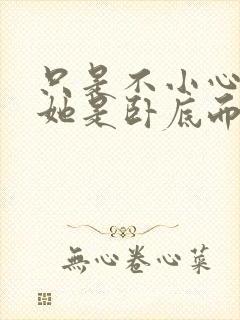 只是不小心
她是卧底而
無心卷心菜